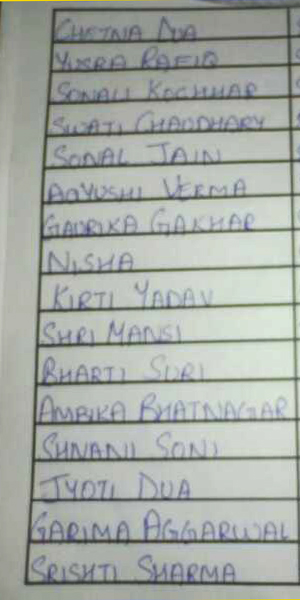 CHETNA DUA
YUSRA RAFIQ
SONALI KOCHHAR
SWATI CHAUDHARY
SONAL JAIN
AAYUSHI VERMA
GAURIKA GAKHAR
NISHA
KIRTI YADAV
SHRI MANSI
BHARTI SURI
AMBIKA BHATNAGAR
SHNANI SONI
JYOTI DUA
GARIMA AGGARWAL
SRISHTI SHARMA